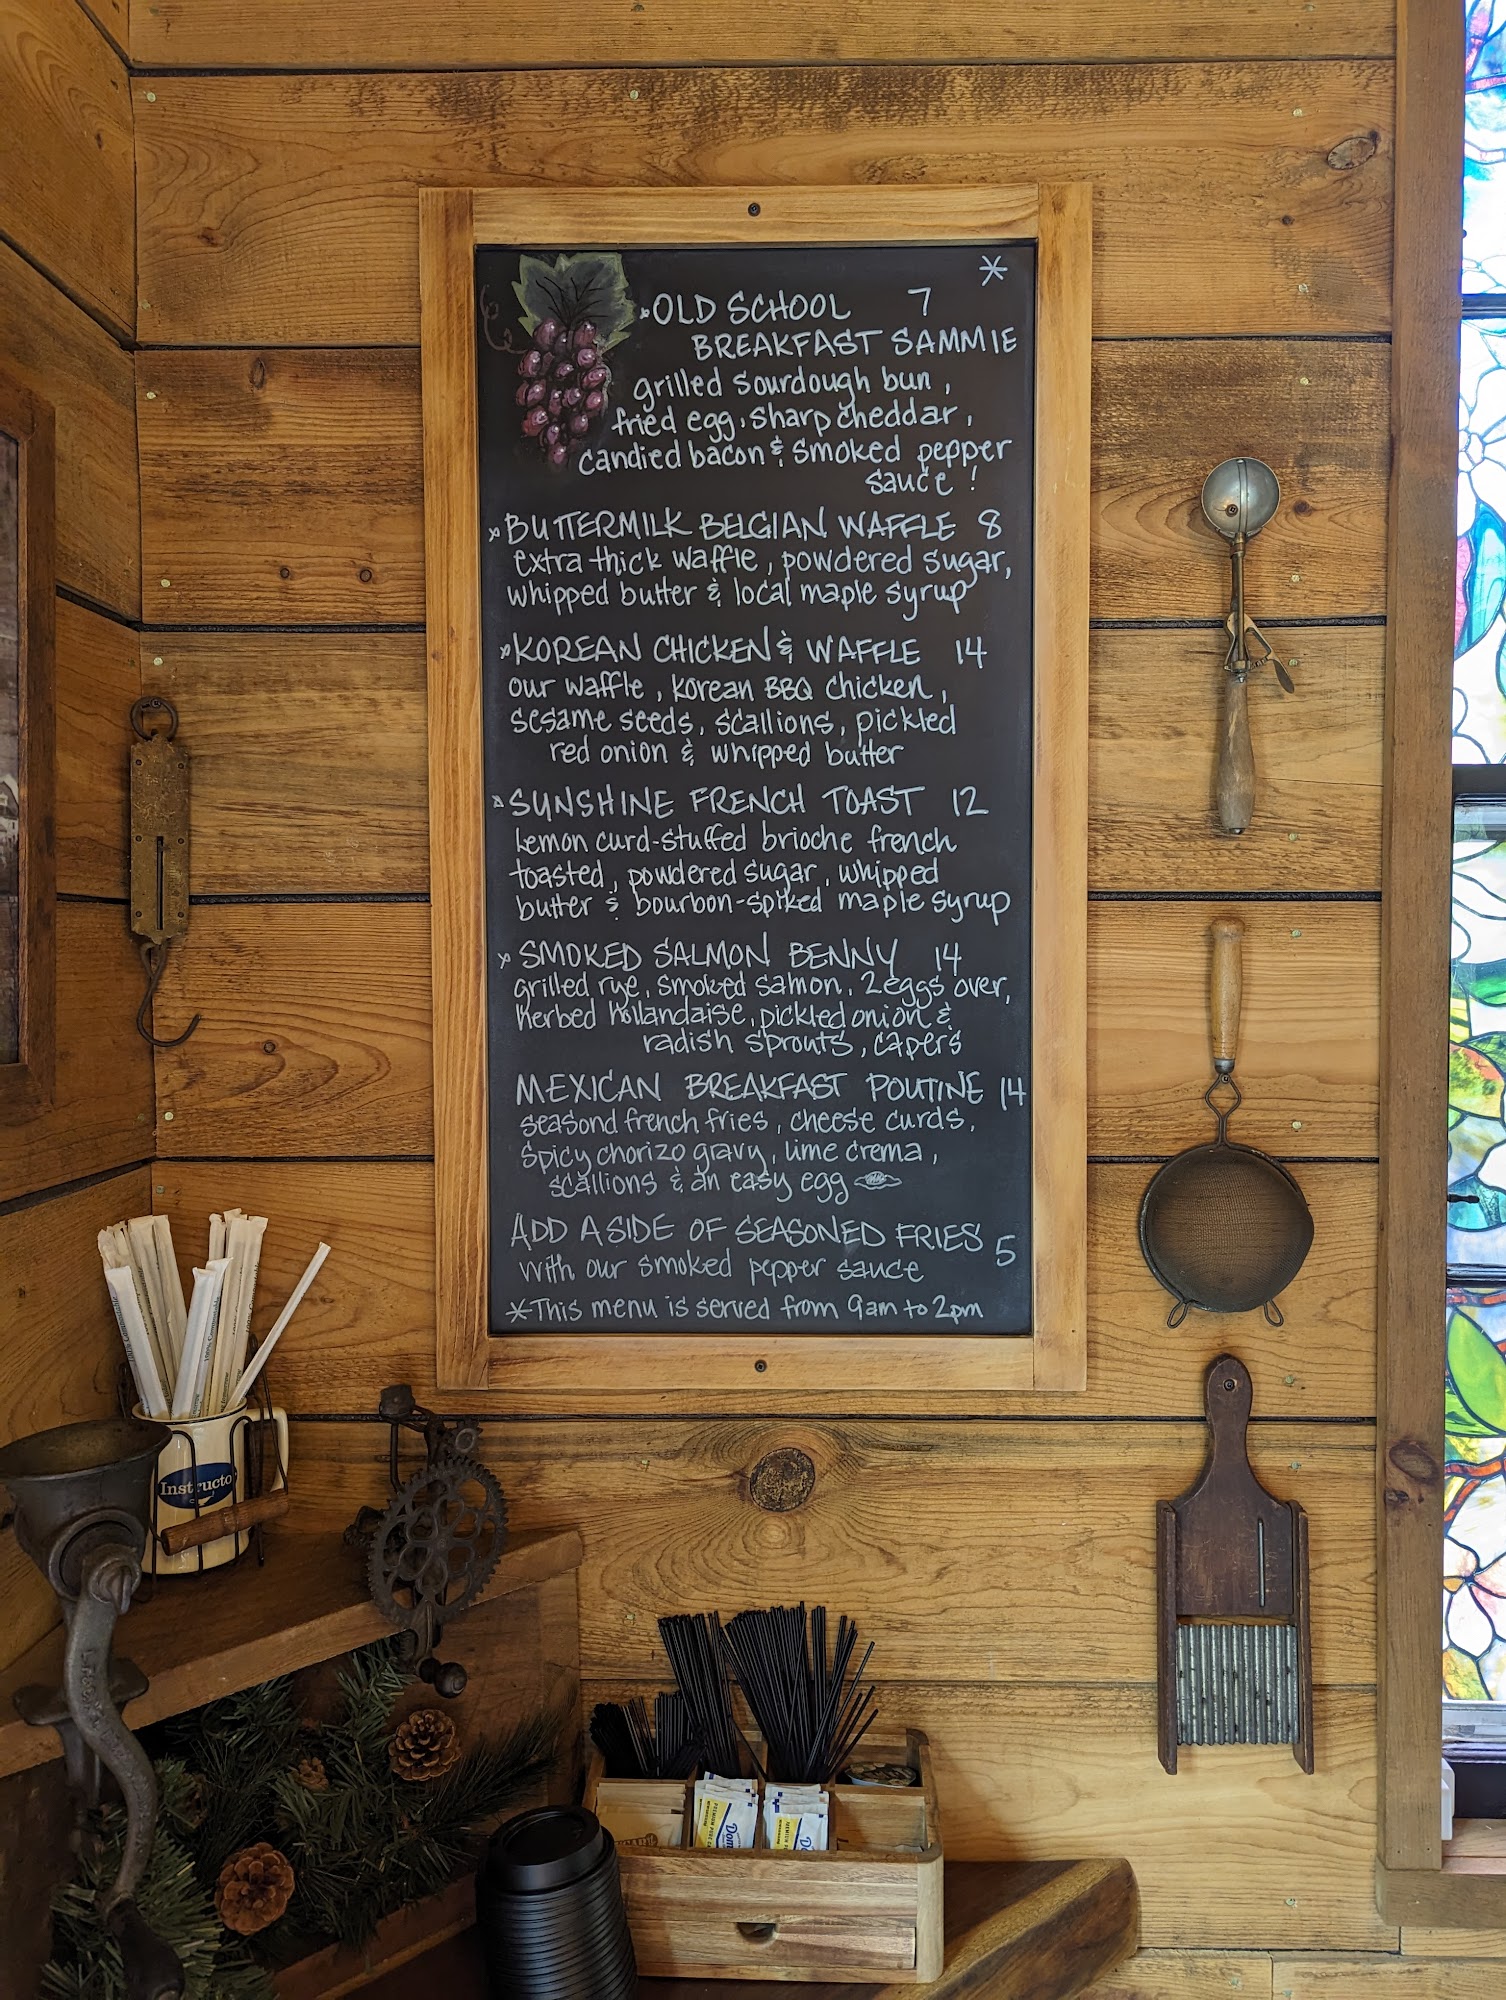 *
OLD SCHOOL 7
BREAKFAST SAMMIE
grilled sourdough bun,
fried egg, sharp cheddar,
candied bacon & smoked pepper
sauce!
BUTTERMILK BELGIAN WAFFLE 8
extra thick waffle, powdered sugar,
whipped butter & local maple syrup
KOREAN CHICKEN & WAFFLE 14
our waffle, korean BBQ chicken,
sesame seeds, scallions, pickled
red onion & whipped butter
SUNSHINE FRENCH TOAST 12
lemon curd-stuffed brioche french
toasted, powdered sugar, whipped
butter & bourbon-spiked maple syrup
SMOKED SALMON BENNY 14
grilled rye, smoked salmon, 2 eggs over,
herbed hollandaise, pickled onion &
radish sprouts, capers
MEXICAN BREAKFAST POUTINE 14
seasond french fries, cheese curds,
spicy chorizo gravy, lime crema,
scallions & an easy egg
ADD A SIDE OF SEASONED FRIES 5
with our smoked pepper sauce
*This menu is served from 9am to 2pm
100% Compostable
Instructo